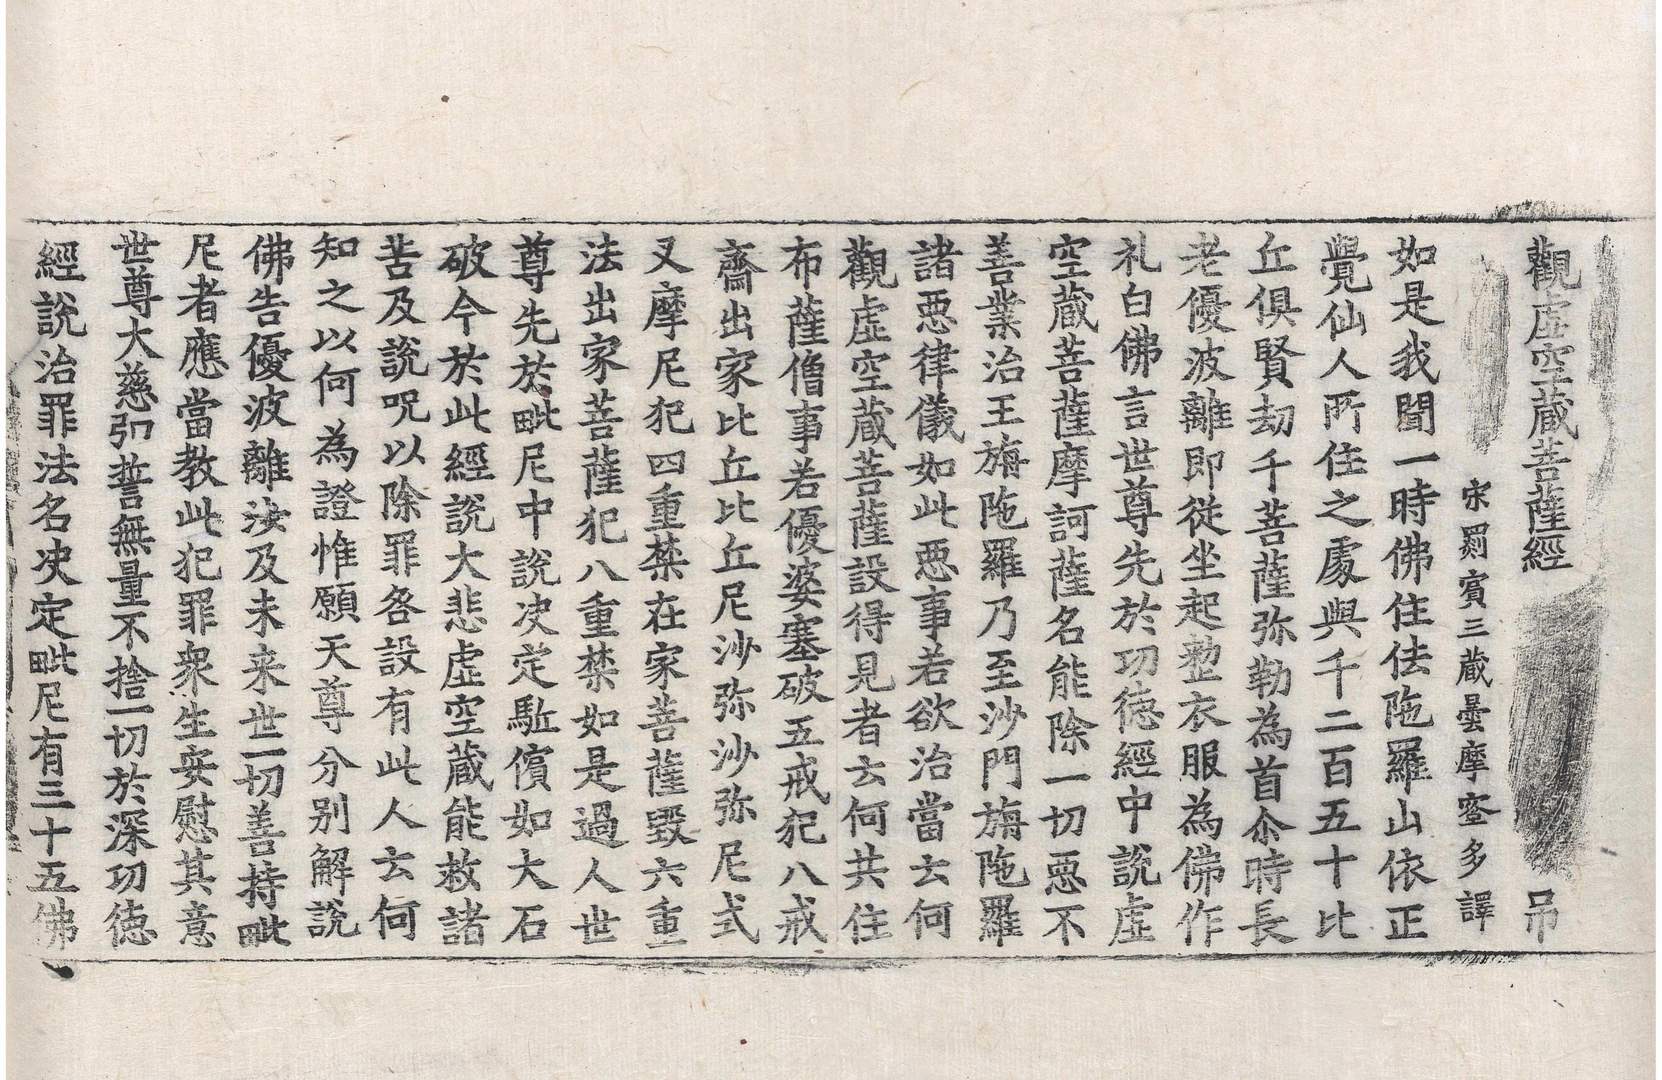 觀虛空蔵菩薩經 吊
宋罽賔三蔵曇摩蜜多譯
如是我聞一時佛住佉陁羅山依正
覺仙人所住之處與千二百五十比
丘俱賢劫千菩薩弥勒為首尒時長
老優波離即從坐起整衣服為佛作
礼白佛言世尊先於功徳經中說虛
空蔵菩薩摩訶薩名能除一切惡不
善業治王旃陁羅乃至沙門旃陁羅
諸惡律儀如此惡事若欲治當云何
觀虛空蔵菩薩設得見者云何共住
布薩僧事若優婆塞破五戒犯八戒
齋出家比丘比丘尼沙弥沙弥尼式
叉摩尼犯四重禁在家菩薩毀六重
法出家菩薩犯八重禁如是過人世
尊先於毗尼中說决定駈儐如大石
破今於此經說大悲虛空蔵能救諸
苦及說呪以除罪咎設有此人云何
知之以何為證惟願天尊分別解說
佛告優波離汝及未来世一切善持毗
尼者應當教此犯罪衆生安慰其意
世尊大慈弘誓無量不捨一切於深功徳
經說治罪法名决定毗尼有三十五佛